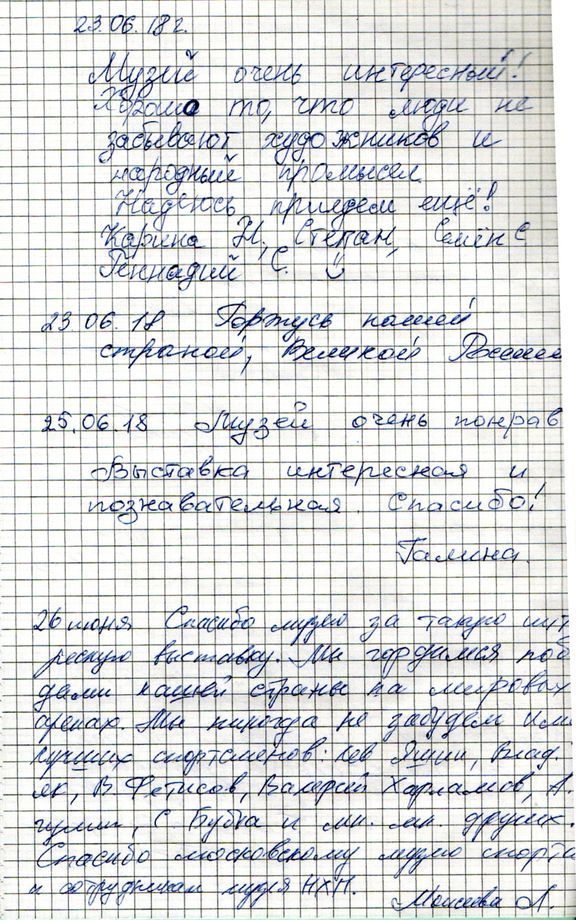 23.06.18 г.
Музей очень интересный!
Хорошо то, что люди не
забывают художников и
народный промысел
Надеюсь приедем ещё!
Карина Н., Степан, Семён С
Геннадий С.
23.06.18 Горжусь нашей
страной, Великой Россией
25.06.18 Музей очень понрав
Выставка интересная и
познавательная. Спасибо!
Галина.
26 июня Спасибо музею за такую инт
ресную выставку. Мы гордимся поб
дами нашей страны на мировых
аренах. Мы никогда не забудем име
лучших спортсменов: Лев Яшин, Влад.
як, В. Фетисов, Валерий Харламов, А.
гулин, С. Бубка и мн. мн. других.
Спасибо московскому музею спорта
и сотрудникам музея НХП.
Моисеева Л.